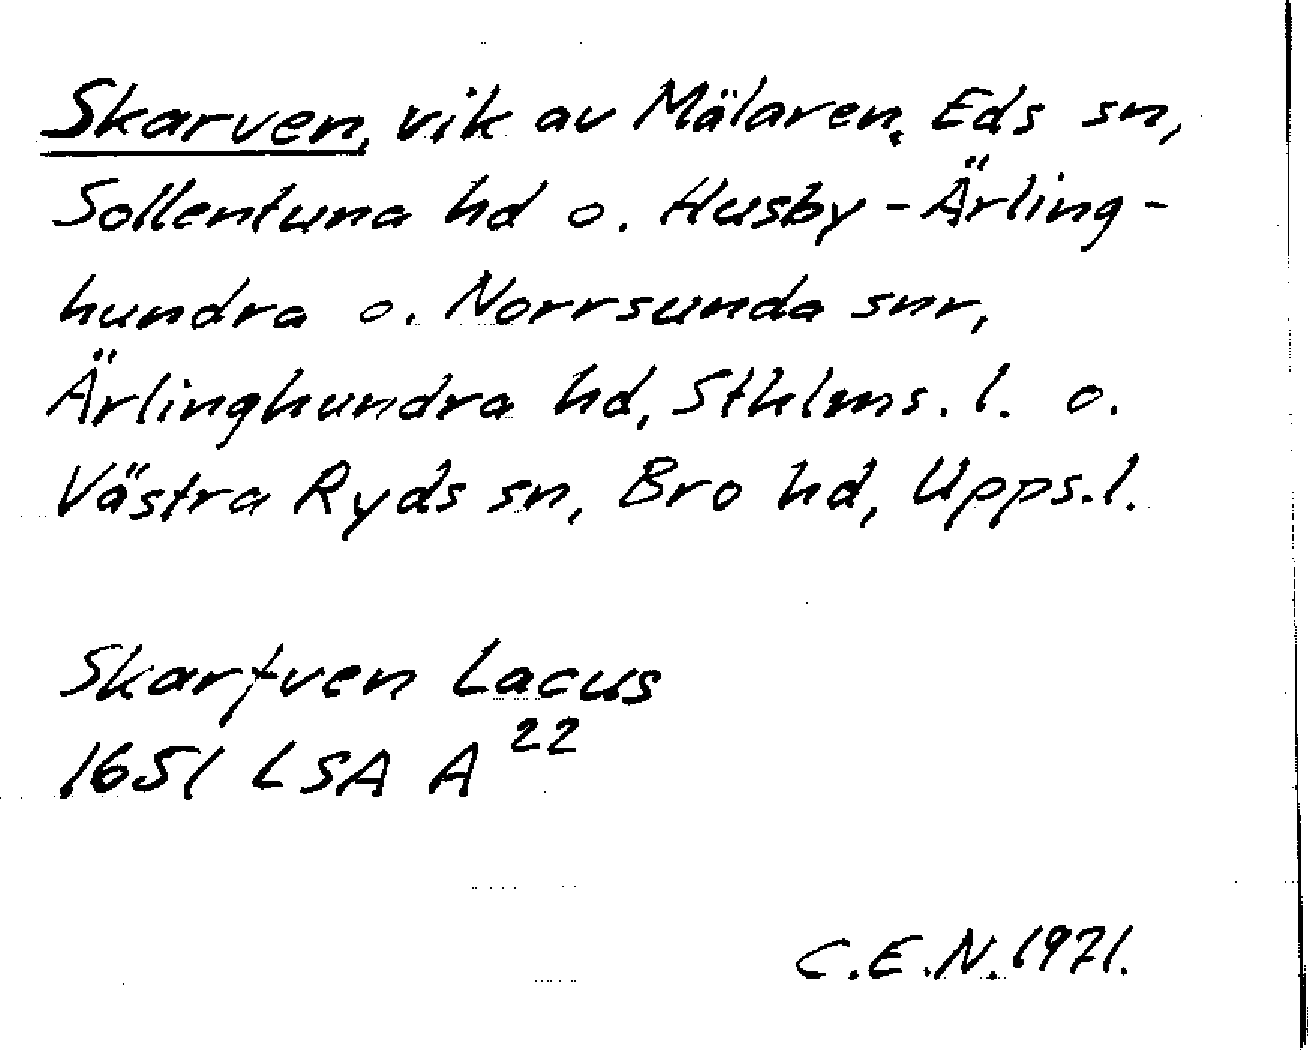 Skarven, vik av Mälaren. Eds sn,
Sollentuna hd o. Husby-Ärling-
hundra o. Norrsunda snr,
Ärlinghundra hd, Sthlms. l. o.
Västra Ryds sn, Bro hd, Upps.l.
Skarfven Lacus
1651 LSA A 22
C.E.N. 1971.